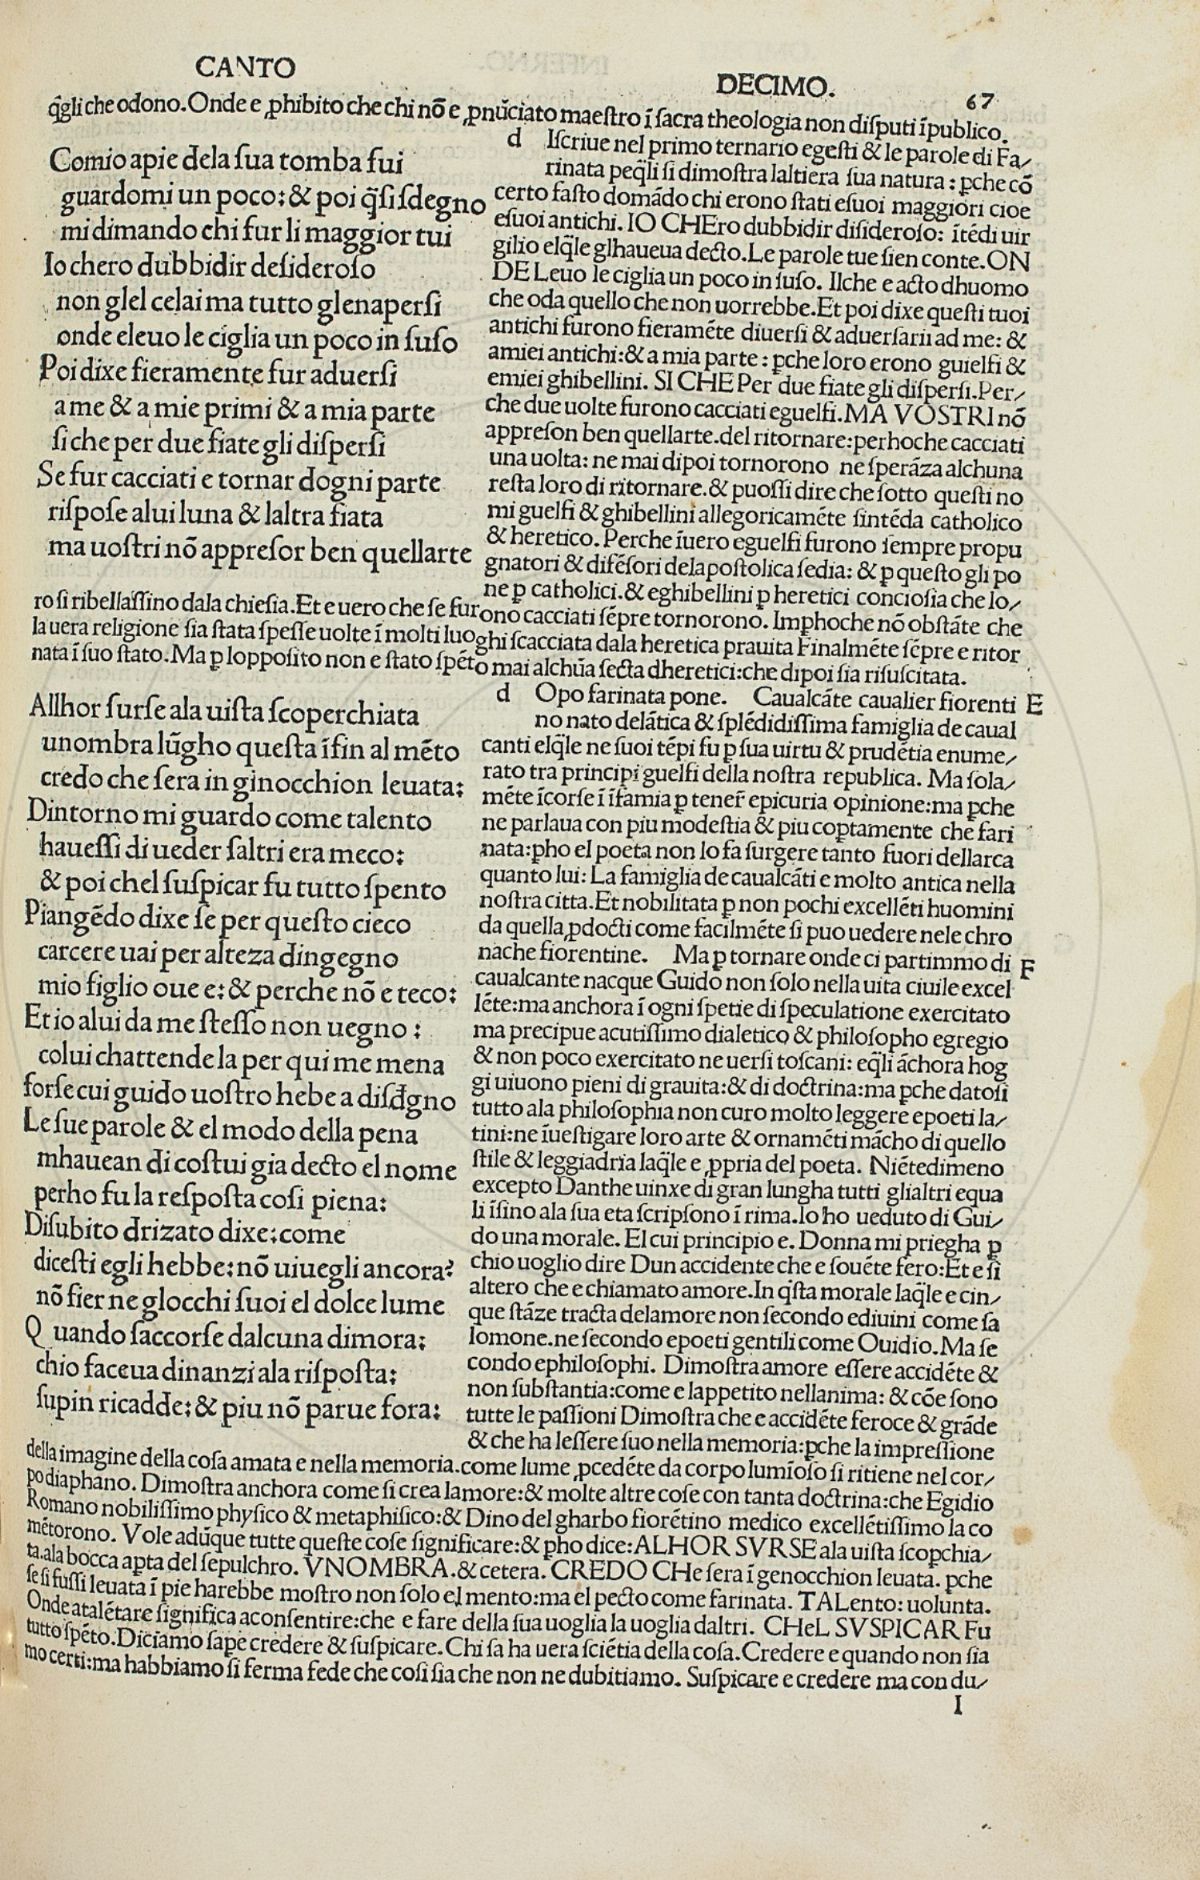 CANTO DECIMO. 67
q̃gli che odono. Onde e ꝓhibito che chi nõ e ꝓnũciato maeſtro ĩ ſacra theologia non diſputi ĩpublico.
Comio apie dela ſua tomba fui
guardomi un poco: & poi q̃ſi ſdegno
mi dimando chi fur li maggior tui
Io chero dubbidir deſideroſo
non glel celai ma tutto glenaperſi
onde eleuo le ciglia un poco in ſuſo
Poi dixe fieramente fur aduerſi
a me & a mie primi & a mia parte
ſi che per due fiate gli diſperſi
Se fur cacciati e tornar dogni parte
riſpoſe alui luna & laltra fiata
ma uoſtri nõ appreſor ben quellarte
d Iſcriue nel primo ternario egeſti & le parole di Fa/
rinata peq̃li ſi dimoſtra laltiera ſua natura: ꝑche cõ
certo faſto domãdo chi erono ſtati eſuoi maggiori cioe
eſuoi antichi. IO CHEro dubbidir diſideroſo: ĩtẽdi uir
gilio elq̃le glhaueua decto. Le parole tue ſien conte. ON
DE Leuo le ciglia un poco in ſuſo. Ilche e acto dhuomo
che oda quello che non uorrebbe. Et poi dixe queſti tuoi
antichi furono fieramẽte diuerſi & aduerſarii ad me: &
amiei antichi: & a mia parte: ꝑche loro erono guielfi &
emiei ghibellini. SI CHE Per due fiate gli diſperſi. Per/
che due uolte furono cacciati eguelfi. MA VOSTRI nõ
appreſon ben quellarte. del ritornare: perhoche cacciati
una uolta: ne mai dipoi tornorono ne ſperãza alchuna
reſta loro di ritornare. & puoſſi dire che ſotto queſti no
mi guelfi & ghibellini allegoricamẽte ſintẽda catholico
& heretico. Perche ĩuero eguelfi furono ſempre propu
gnatori & difẽſori delapoſtolica ſedia: & ꝑ queſto gli po
ne ꝑ catholici. & eghibellini ꝑ heretici concioſia che lo/
ro ſi ribellaſſino dala chieſia. Et e uero che ſe furono cacciati ſẽpre tornorono. Imꝑhoche nõ obſtãte che
la uera religione ſia ſtata ſpeſſe uolte ĩ molti luoghi ſcacciata dala heretica prauita Finalmẽte ſẽpre e ritor
nata ĩ ſuo ſtato. Ma ꝑ loppoſito non e ſtato ſpẽto mai alchũa ſecta dheretici: che dipoi ſia riſuſcitata.
Allhor ſurſe ala uiſta ſcoperchiata
unombra lũgho queſta ĩfin al mẽto
credo che ſera in ginocchion leuata:
Dintorno mi guardo come talento
haueſſi di ueder ſaltri era meco:
& poi chel ſuſpicar fu tutto ſpento
Piangẽdo dixe ſe per queſto cieco
carcere uai per alteza dingegno
mio figlio oue e: & perche nõ e teco:
Et io alui da me ſteſſo non uegno:
colui chattende la per qui me mena
forſe cui guido uoſtro hebe a diſdgno
Le ſue parole & el modo della pena
mhauean di coſtui gia decto el nome
perho fu la reſpoſta coſi piena:
Diſubito drizato dixe: come
diceſti egli hebbe: nõ uiuegli ancora?
nõ fier ne glocchi ſuoi el dolce lume
Quando ſaccorſe dalcuna dimora:
chio faceua dinanzi ala riſpoſta:
ſupin ricadde: & piu nõ parue fora:
d Opo farinata pone. Caualcãte caualier fiorenti E
no nato delãtica & ſplẽdidiſſima famiglia de caual
canti elq̃le ne ſuoi tẽpi fu ꝑ ſua uirtu & prudẽtia enume/
rato tra principi guelfi della noſtra republica. Ma ſola/
mẽte ĩcorſe ĩ ĩfamia ꝑ tener epicuria opinione: ma ꝑche
ne parlaua con piu modeſtia & piu coptamente che fari
nata: ꝑho el poeta non lo fa ſurgere tanto fuori dellarca
quanto lui: La famiglia de caualcãti e molto antica nella
noſtra citta. Et nobilitata ꝑ non pochi excellẽti huomini
da quella ꝓdocti come facilmẽte ſi puo uedere nele chro
nache fiorentine. Ma ꝑ tornare onde ci partimmo di F
caualcante nacque Guido non ſolo nella uita ciuile excel
lẽte: ma anchora ĩ ogni ſpetie di ſpeculatione exercitato
ma precipue acutiſſimo dialetico & philoſopho egregio
& non poco exercitato ne uerſi toſcani: eq̃li ãchora hog
gi uiuono pieni di grauita: & di doctrina: ma ꝑche datoſi
tutto ala philoſophia non curo molto leggere epoeti la/
tini: ne ĩueſtigare loro arte & ornamẽti mãcho di quello
ſtile & leggiadria laq̃le e ꝓpria del poeta. Niẽtedimeno
excepto Danthe uinxe di gran lungha tutti glialtri equa
li ĩſino ala ſua eta ſcripſono ĩ rima. Io ho ueduto di Gui/
do una morale. El cui principio e. Donna mi priegha ꝑ
chio uoglio dire Dun accidente che e ſouẽte fero: Et e ſi
altero che e chiamato amore. In q̃ſta morale laq̃le e cin/
que ſtãze tracta delamore non ſecondo ediuini come ſa
lomone. ne ſecondo epoeti gentili come Ouidio. Ma ſe
condo ephiloſophi. Dimoſtra amore eſſere accidẽte &
non ſubſtantia: come e lappetito nellanima: & cõe ſono
tutte le paſſioni Dimoſtra che e accidẽte feroce & grãde
& che ha leſſere ſuo nella memoria: ꝑche la impreſſione
della imagine della coſa amata e nella memoria. come lume ꝓcedẽte da corpo lumĩoſo ſi ritiene nel cor/
po diaphano. Dimoſtra anchora come ſi crea lamore: & molte altre coſe con tanta doctrina: che Egidio
Romano nobiliſſimo phyſico & metaphiſico: & Dino del gharbo fiorẽtino medico excellẽtiſſimo la co
mẽtorono. Vole adũque tutte queſte coſe ſignificare: & ꝑho dice: ALHOR SVRSE ala uiſta ſcopchia/
ta. ala bocca apta del ſepulchro. VNOMBRA. & cetera. CREDO CHe ſera ĩ genocchion leuata. ꝑche
ſe ſi fuſſi leuata ĩ pie harebbe moſtro non ſolo el mento: ma el pecto come farinata. TALento: uolunta.
Onde atalẽtare ſignifica aconſentire: che e fare della ſua uoglia la uoglia daltri. CHeL SVSPICAR Fu
tutto ſpẽto. Diciamo ſape credere & ſuſpicare. Chi ſa ha uera ſciẽtia della coſa. Credere e quando non ſia
mo certi: ma habbiamo ſi ferma fede che coſi ſia che non ne dubitiamo. Suſpicare e credere ma con du/
I